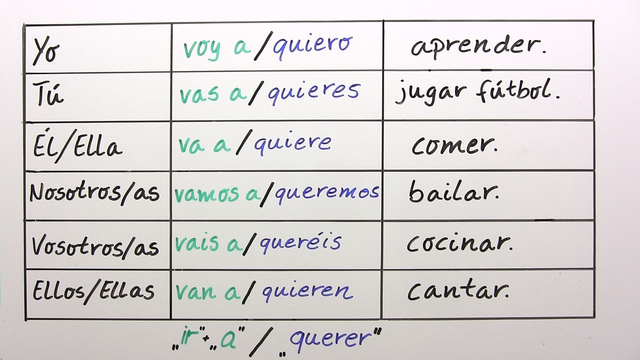 Yo voy a/quiero aprender.
Tú vas a/quieres jugar fútbol.
Él/Ella va a/quiere comer.
Nosotros/as vamos a/queremos bailar.
Vosotros/as vais a/queréis cocinar.
Ellos/Ellas van a/quieren cantar.
„ir"+„a" / „querer"